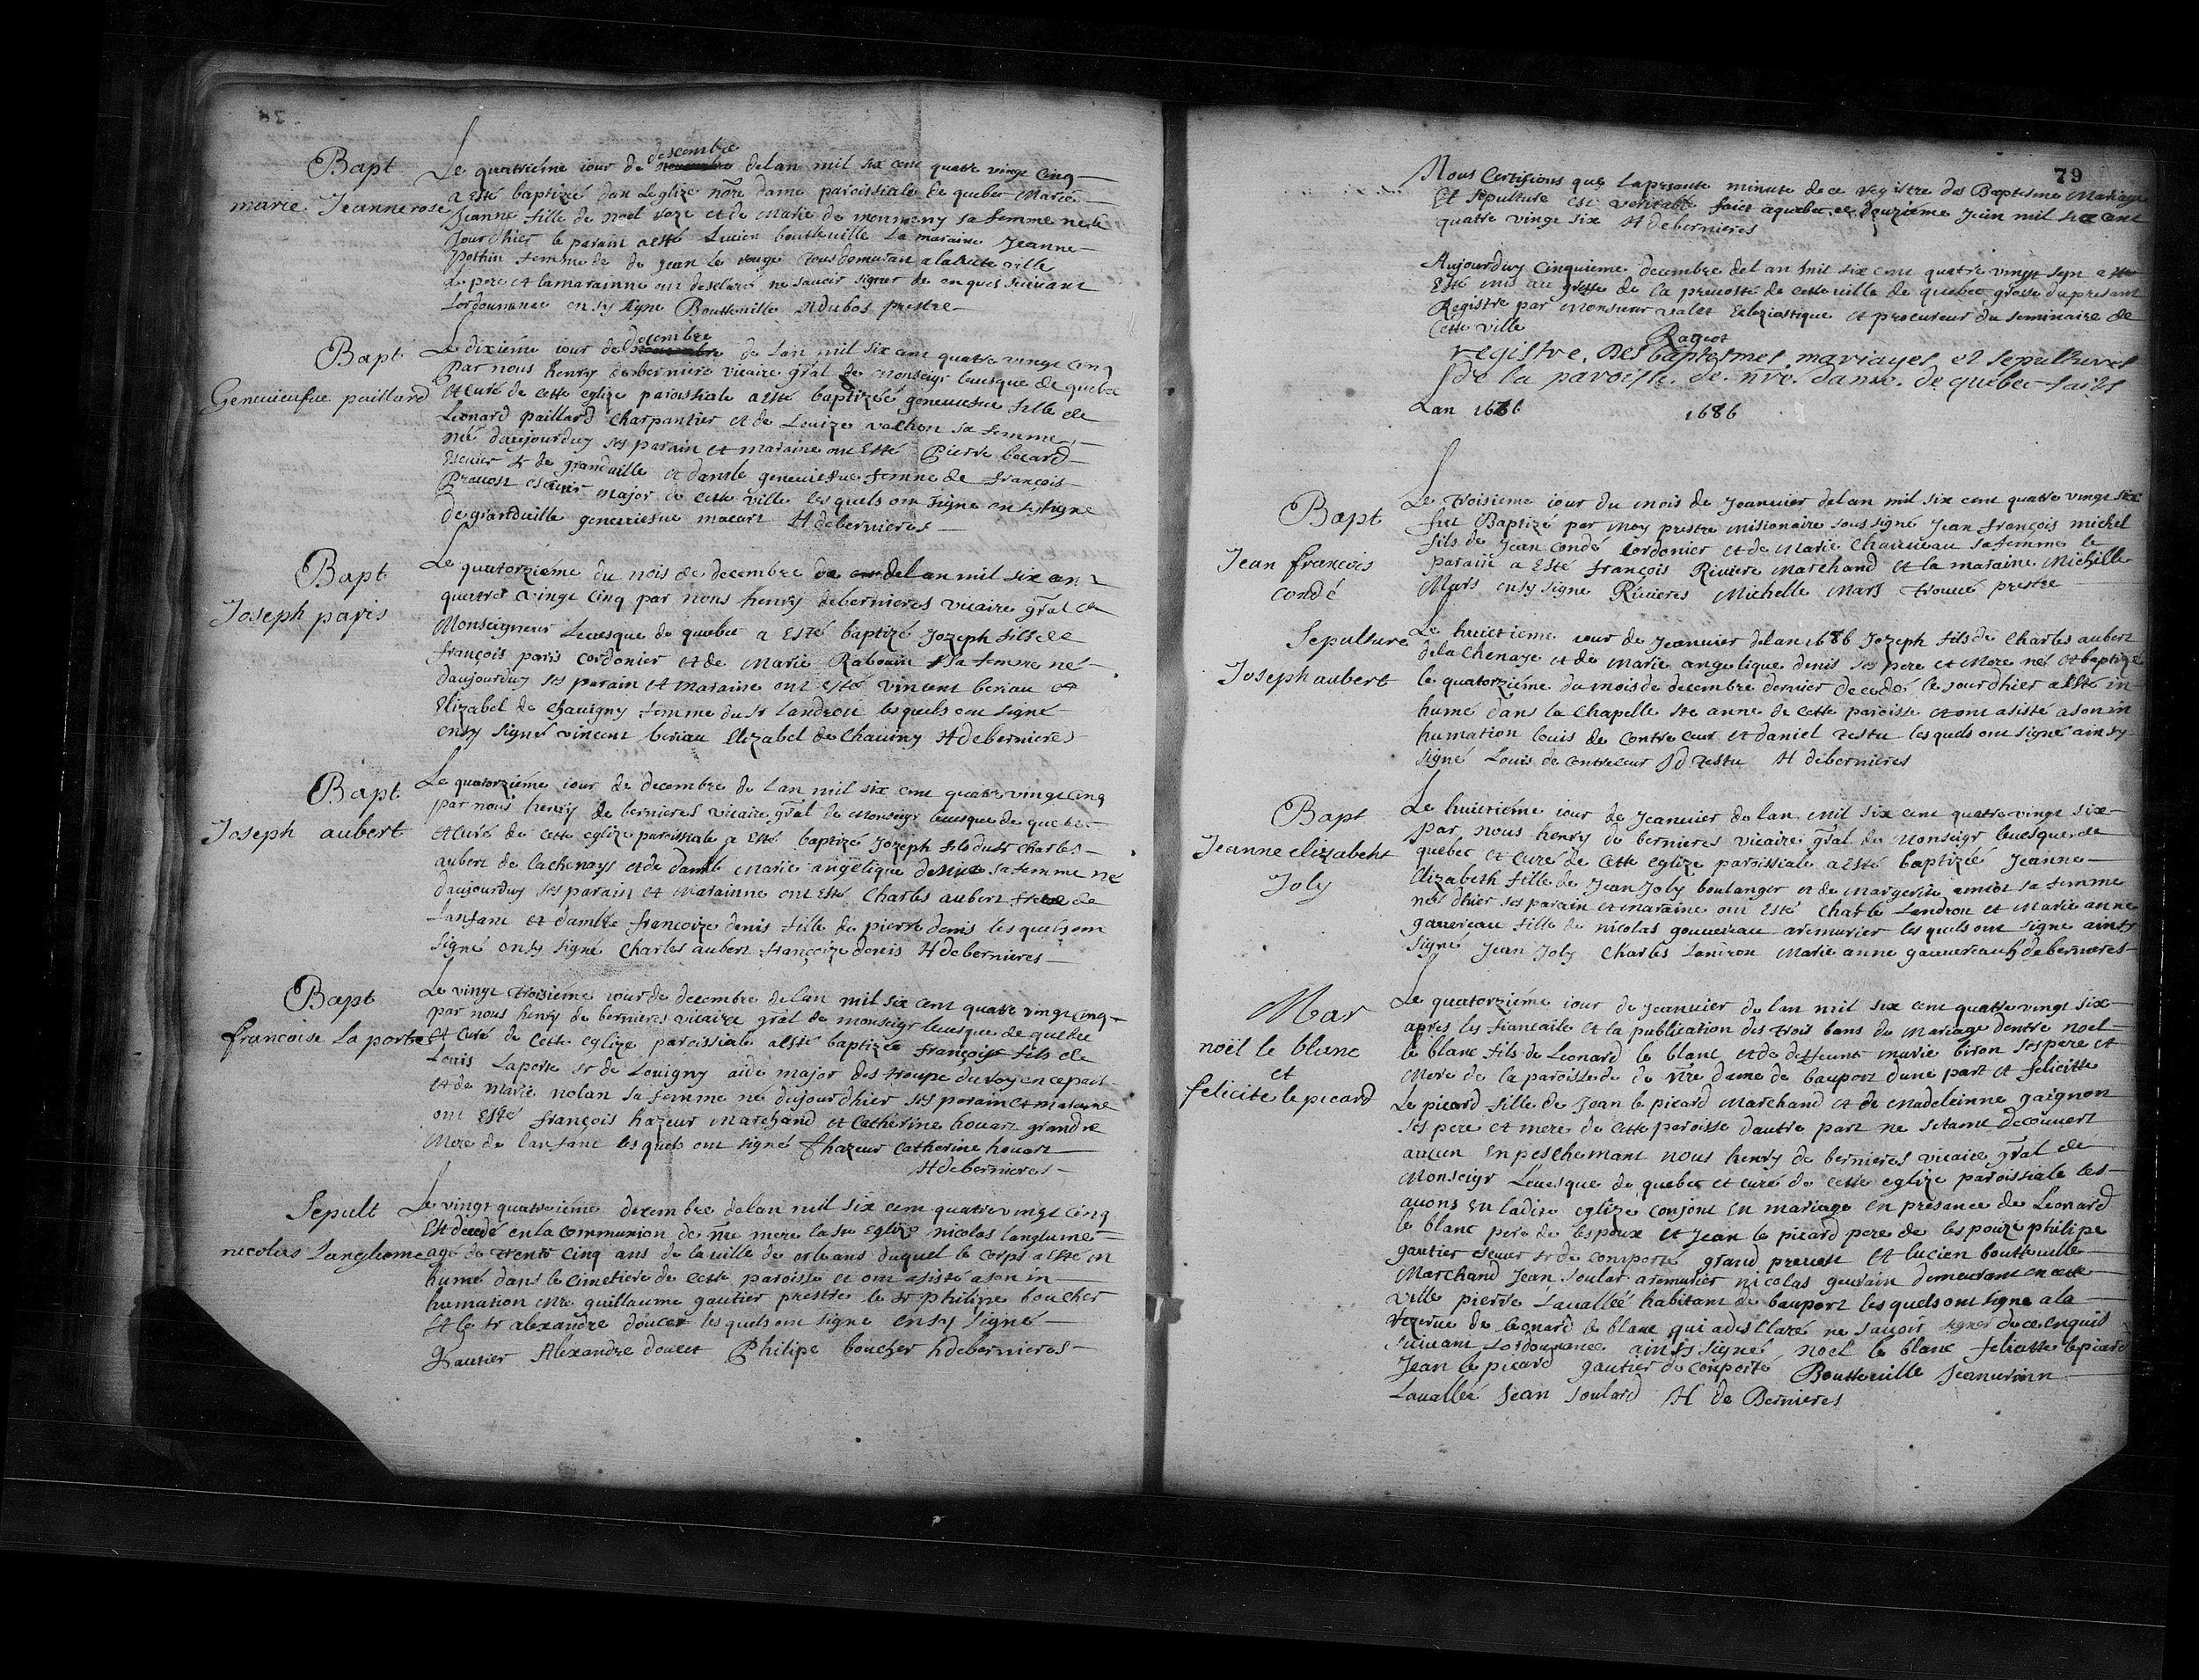 Bapt
marie Jeanne rose
Le quatrieme iour de descembre novembre de lan mil six cens quatre vingt cinq
a esté baptizée dan Leglize nore dame paroissiale de quebec Marie
Jeanne fille de noel roze et de Marie de monmeny sa femme née le
Jour dhier le parain a esté Lucien boutteuille la maraine Jeanne
Pothin femme de de Jean le rouge tous demuran a la Ville
le pere et la marainne ont desclaré ne sauoir signer de en quis suiuant
lordonnance ensy signe Boutteuille Ndubos prestre
Bapt
Geneuieufue paillard
Le dixieme iour de decembre novembre de lan mil six cent quatre vingt cinq
par nous henry de berniere vicaire gral de Monseigr leuesque de quebec
et Curé de cette eglize paroissiale a esté baptizeé geneuiefue fille de
Leonard paillard Charpantier et de Louize vachon sa femme
né daujourduy ses parain et maraine ont Esté Pierre becard
Escuier sr de granduille et damlle geneuiefue femme de françois
Preuost escuier major de cette ville lesquels ont signe ensy signe
De granduille geneuiesue macart H debernieres
Bapt
Joseph paris
Le quatorzieme du mois de decembre de lan mil six cent
quatre vingt cinq par nous henry debernieres vicaire gral de
Monseigneur Leuesque de quebec a Esté baptizé Jozeph fils de
françois paris cordonier et de Marie Rabouin sa femme né
daujourduy ses parain et maraine ont esté vincent beriau et
Elizabel de Chauigny femme du sr landron lesquels ont signé
ensy signé vincent beriau Elizabel de Chauiny H debernieres
Bapt
Joseph aubert
Le quatorziéme iour de decembre de lan mil six cent quatre vingt cinq
par nous henry de bernieres vicaire gral de Monseigr leuesque de quebec
et curé de cette eglize paroissiale a Esté baptizé Jozeph fils du sr Charles
aubert de lachenays et de damle Marie angelique denis sa femme né
daujourduy ses parain et Marainne ont esté Charles aubert frere de
lanfant et damlle francoize denis fille de pierre denis lesquels ont
signé ensy signé Charles aubert françoize denis H debernieres
Bapt
francoise La porte
Le vingt troisiéme iour de decembre de lan mil six cent quatre vingt cinq
par nous henry de bernieres vicaire gral de monseigr leuesque de quebec
et Curé de cette eglize paroissiale a esté baptizée françoise fils de
Louis Laporte sr de Louigny aide major des troupe du roy en ce pais
et de marie nolan sa femme né du jour dhier ses parain et maraine
ont Esté françois hazeur Marchand et Catherine houart grandre
Mere de lanfant lesquels ont signé f hazeur Catherine houart
H debernieres
Sepult
nicolas Langlume
Le vingt quatrieiéme decembre de lan mil six cent quatre vingt cinq
Est decedé en la Communion de nre mere la ste Eglize nicolas langlume
agé de trente cinq ans de la uille de orleans duquel le corps a esté in
humé dans le cimetiere de cette paroisse et ont asisté a son in
humation Mre guillaume gautier prestre le sr philipe boucher
Et le sr alexandre doucet lesquels ont signe ensy signé
Gautier Alexandre doucet Philipe boucher h debernieres
79
Nous Certifions que la presante minute de ce registre des Baptesme Mariage
Et sepulture est veritable faict a quebec ce deuzieme Juin mil six cent
quatre vingt six H debernieres
Aujourduy Cinquieme decembre del an mil six cent quatre vingt sept a
Esté mis au greffe de la preuosté de cette uille de quebec grosse du presant
Registre par Monsieur valet Eclesiastique et procureur du seminaire de
Cette ville
Rageot
registre. Des baptesmes mariages et sepultures
de la paroisse. de. nre. dame. de quebec faits
Lan 1686
1686
Bapt
Jean françois
condé
Le troisieme iour du mois de Jeanuier delan mil six cent quatre vingt six
fut Baptizé par moy prestre misionaire soussigné Jean françois michel
fils de Jean Condé Cordonier et de Marie Chauueau sa femme le
parain a esté françois Riviere Marchand et la maraine Michelle
Mars ensy signe Rivieres Michelle Mars trouué prestre
Sepulture
Joseph aubert
Le huictieme iour de Jeanuier delan 1686 Jozeph fils de Charles aubert
de la Chenaye et de Marie angelique denis ses pere et Mere né et baptizé
le quatorziéme du mois de decembre dernier decedé le jour dhier a esté in
humé dans la Chapelle ste anne de cette paroisse et ont asisté a son in
humation louis de Contre ceur et daniel testu lesquels ont signé ainsy
signé Louis de contreceur d testu H debernieres
Bapt
Jeanne elizabeht
Joly
Le huictiéme iour de Jeanuier de lan mil six cent quatre vingt six
par nous henry de bernieres vicaire gral de Monseigr leuesque de
quebec et Curé de cette eglize paroissiale a esté baptizée Jeanne
Elizabeth fille de Jean Joly boulanger et de margerite amiot sa femme
neé dhier ses parain et maraine ont esté Charle Landron et Marie anne
gauureau fille de nicolas gouuereau aremurier lesquels ont signe ainsy
signé Jean Joly Charles Landron Marie anne gauuereau h debernieres
Mar
noël le blanc
et
felicite le picard
Le quatorziéme iour de Jeanuier de lan mil six cent quatre vingt six
apres les fiancaile et la publication des trois bans de mariage dentre noel
le blanc fils de Leonard le blanc et de deffeunte marie biron ses pere et
Mere de la paroisse de de nre dame de bauport dune part et felicitte
Le picard fille de Jean le picard Marchand et de Madeleinne gaignon
ses pere et mere de cette paroisse dautre part ne setant decouvert
aucun enpeschemant nous henry de bernieres vicaire gral de
Monseigr Leuesque de quebec et curé de cette eglize paroissiale les
auons en ladite eglize conjoint en mariage en presance de Leonard
le blanc pere de lespoux et Jean le picard pere de lespouze philipe
gautier escuier sr de comporté grand preuost et lucien boutteuille
Marchand Jean soular aremurier nicolas geurain demeurant en cette
Ville pierre Lauallée habitant de bauport lesquels ont signe a la
rezerue de leonard le blanc qui a desllaré ne sauoir signer de ce enquis
suiuant lordonnance ainsy signé noel le blanc felicitte le picard
Jean le picard gautier de Comporté Boutteuille
Lauallée Jean soulard H de Bernieres